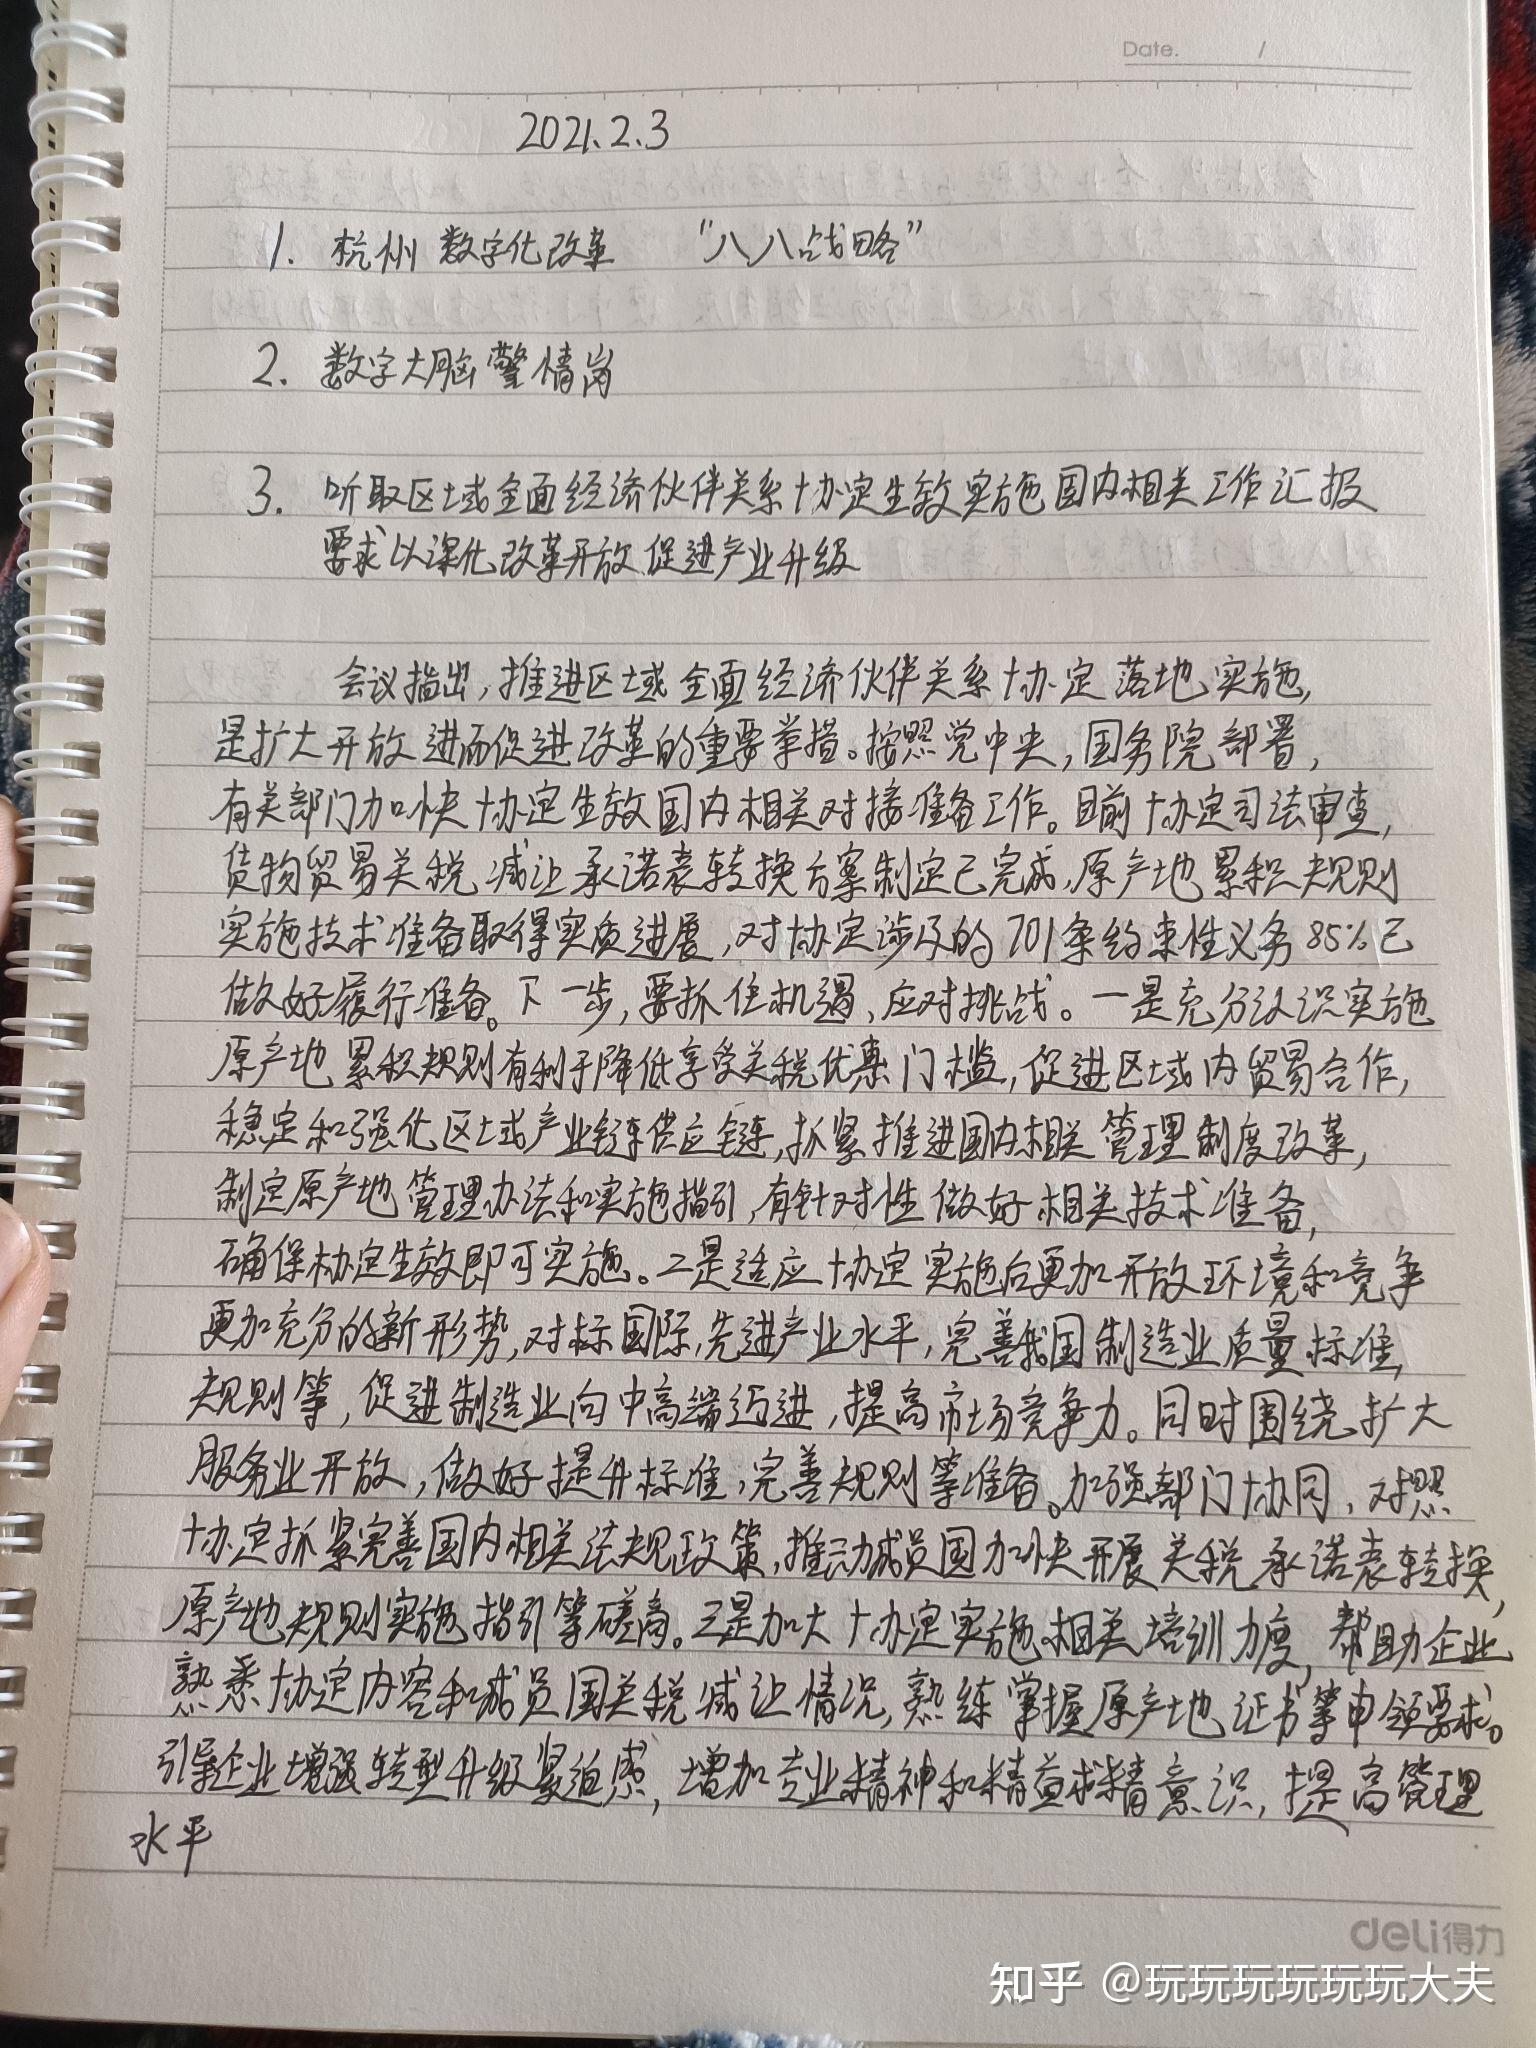 Date. /
2021.2.3
1. 杭州 数字化改革 “八八战略”
2. 数字大脑警情岗
3. 听取区域全面经济伙伴关系协定生效实施国内相关工作汇报
要求以深化改革开放促进产业升级
会议指出，推进区域全面经济伙伴关系协定落地实施，
是扩大开放进而促进改革的重要举措。按照党中央，国务院部署，
有关部门加快协定生效国内相关对接准备工作。目前协定司法审查，
货物贸易关税减让承诺表转换方案制定已完成，原产地累积规则
实施技术准备取得实质进展，对协定涉及的701条约束性义务85%已
做好履行准备。下一步，要抓住机遇、应对挑战。一是充分认识实施
原产地累积规则有利于降低享受关税优惠门槛，促进区域内贸易合作，
稳定和强化区域产业链供应链，抓紧推进国内相关管理制度改革，
制定原产地管理办法和实施指引，有针对性做好相关技术准备，
确保协定生效即可实施。二是适应协定实施后更加开放环境和竞争
更加充分的新形势，对标国际先进产业水平，完善我国制造业质量标准，
规则等，促进制造业向中高端迈进，提高市场竞争力。同时围绕扩大
服务业开放，做好提升标准，完善规则等准备。加强部门协同，对照
协定抓紧完善国内相关法规政策，推动成员国加快开展关税承诺表转换，
原产地规则实施指引等磋商。三是加大协定实施相关培训力度，帮助企业
熟悉协定内容和成员国关税减让情况，熟练掌握原产地证书等申领要求。
引导企业增强转型升级紧迫感，增加专业精神和精益求精意识，提高管理
水平
deli得力
知乎 @玩玩玩玩玩玩大夫